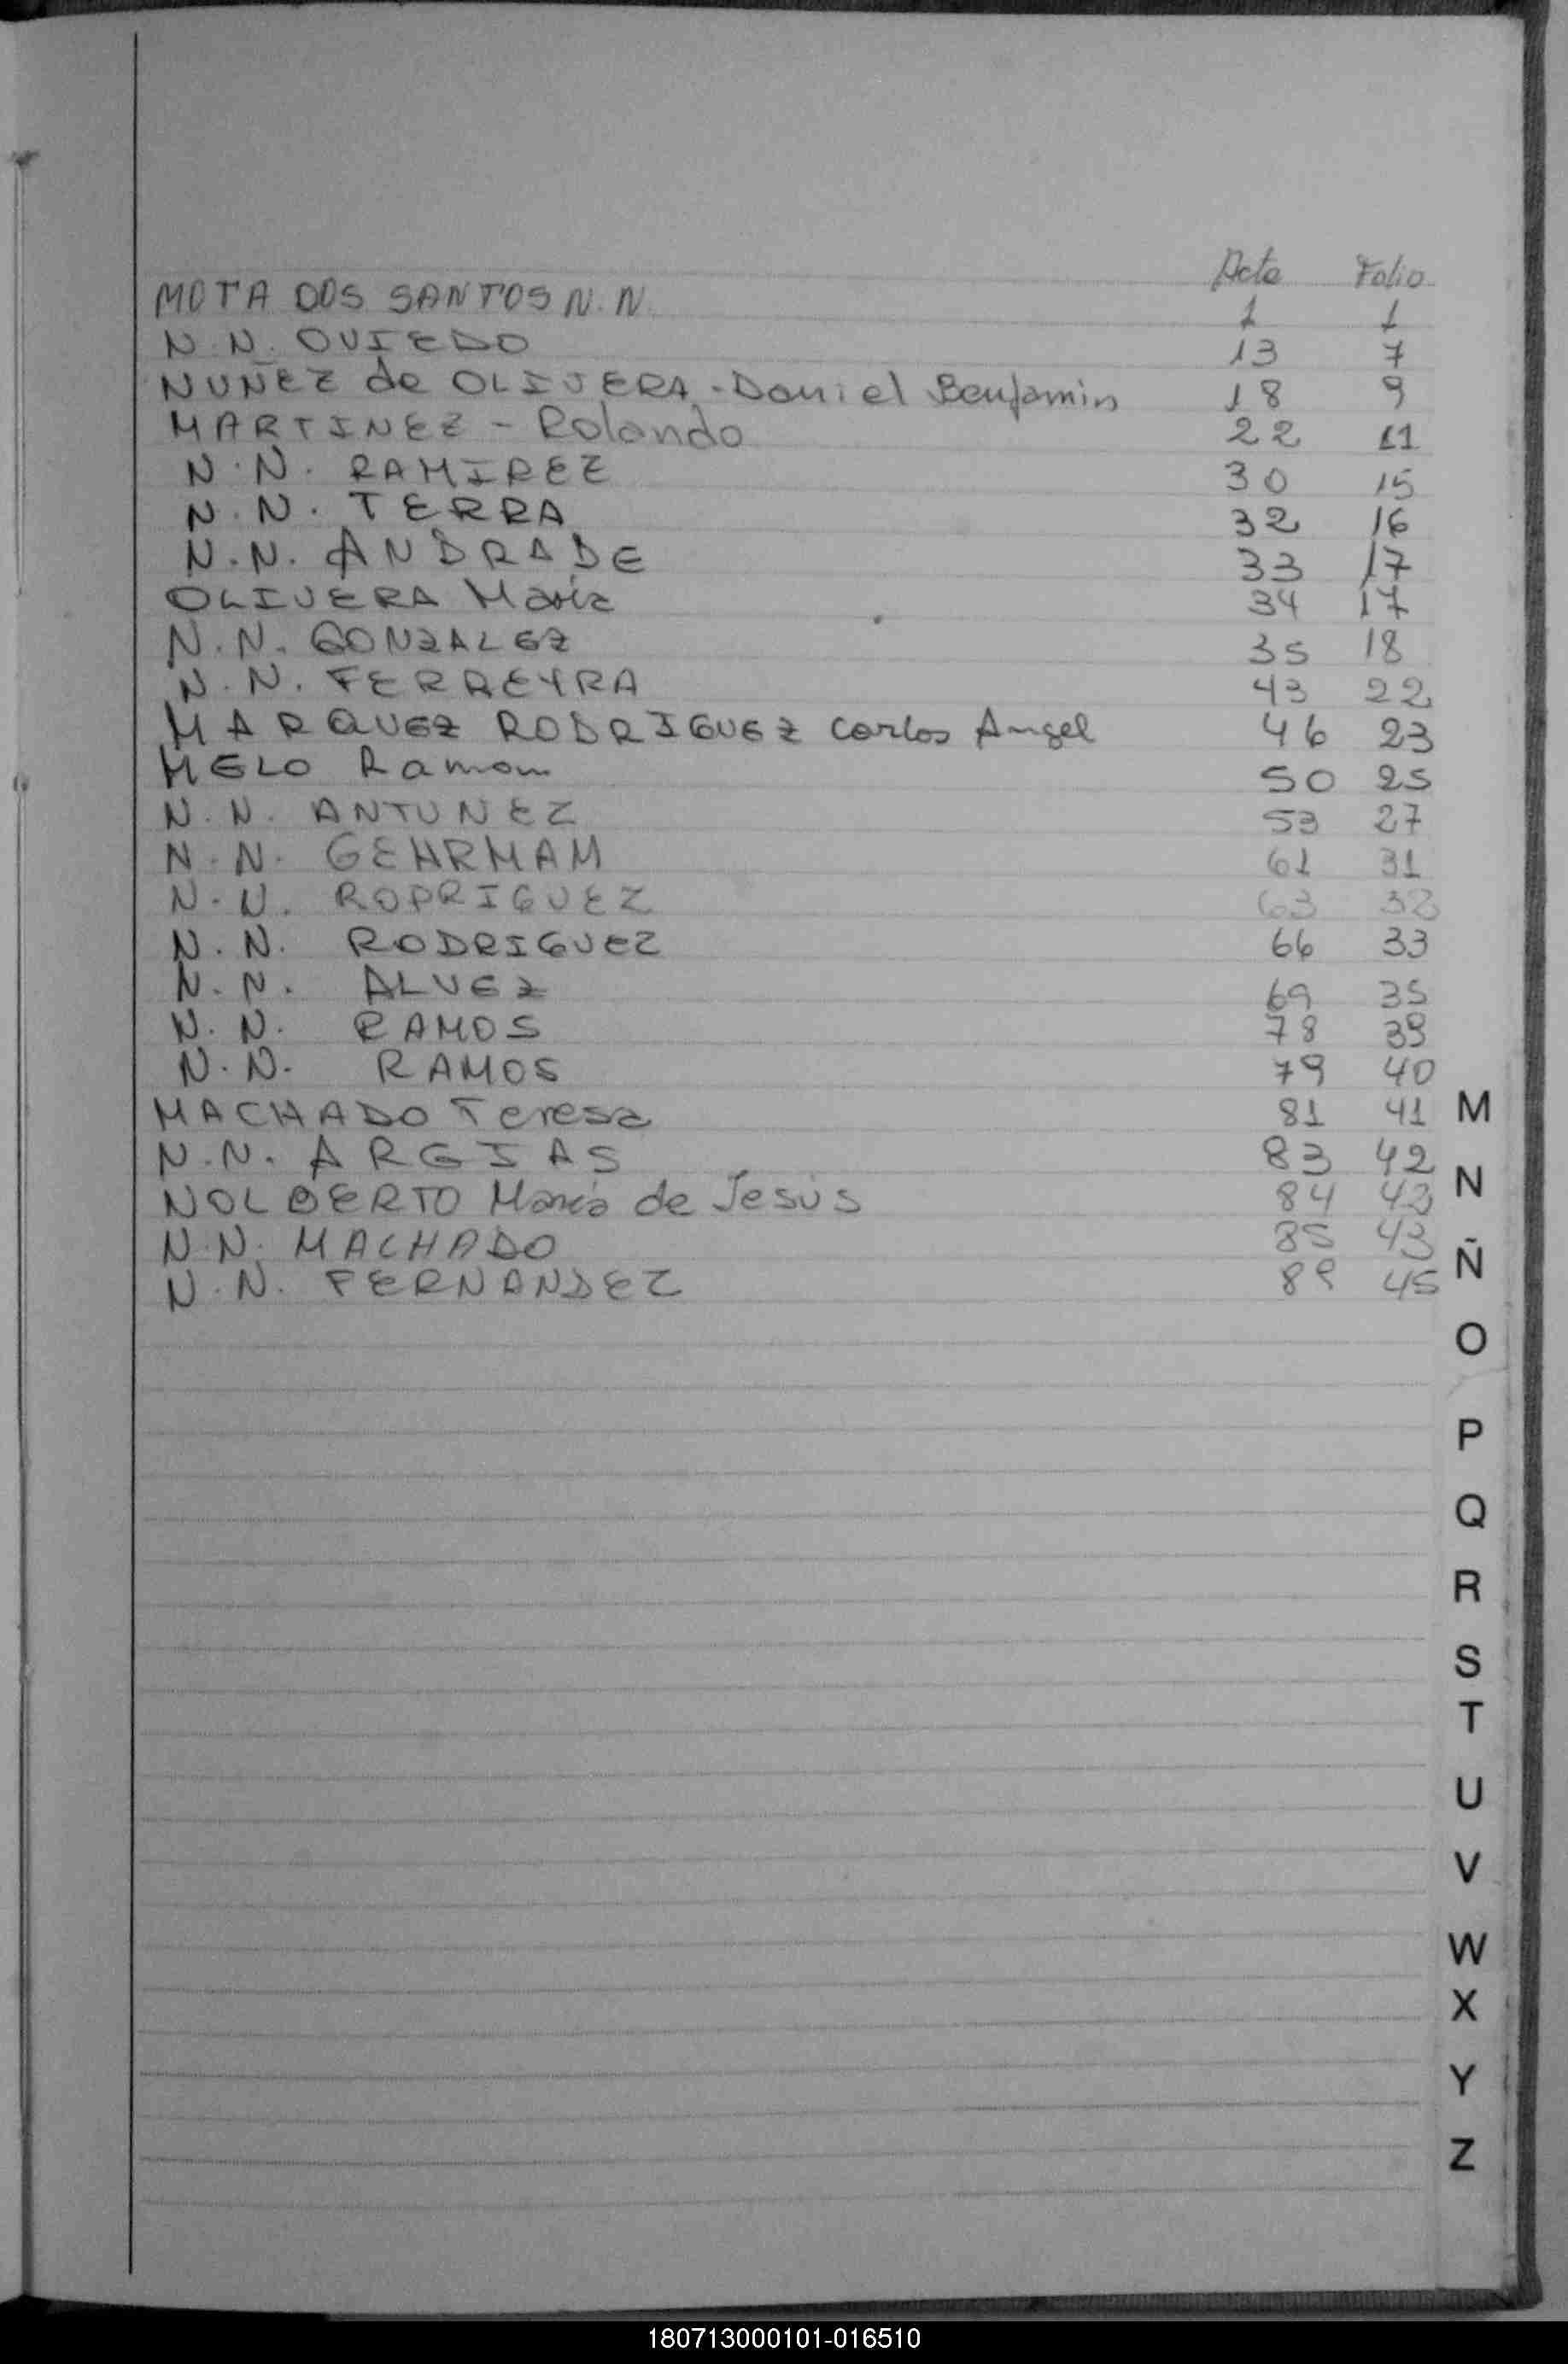 Acta Folio
MOTA DOS SANTOS N.N. 1 1
N.N. OVIEDO 13 7
NUÑEZ de OLIVERA - Daniel Benjamin 18 9
MARTINEZ - Rolando 22 11
N.N. RAMIREZ 30 15
N.N. TERRA 32 16
N.N. ANDRADE 33 17
OLIVERA María 34 17
N.N. GONZALEZ 35 18
N.N. FERREYRA 43 22
MARQUEZ RODRIGUEZ Carlos Angel 46 23
MELO Ramon 50 25
N.N. ANTUNEZ 53 27
N.N. GEHRMAM 61 31
N.N. RODRIGUEZ 63 32
N.N. RODRIGUEZ 66 33
N.N. ALVEZ 69 35
N.N. RAMOS 78 39
N.N. RAMOS 79 40
MACHADO Teresa 81 41
M
N.N. ARGIAS 83 42
NOLBERTO María de Jesús 84
N
N.N. MACHADO 85 43
Ñ
N.N. FERNANDEZ 89 45
O
P
Q
R
S
T
U
V
W
X
Y
Z
180713000101-016510